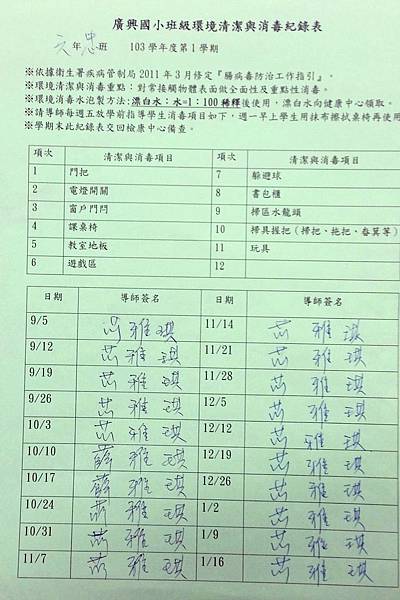 廣興國小班級環境清潔與消毒紀錄表
六年忠班 103學年度第1學期
※依據衛生署疾病管制局2011年3月修定『腸病毒防治工作指引』。
※環境清潔與消毒重點：對常接觸物體表面做全面性及重點性消毒。
※環境消毒水泡製方法:漂白水：水=1：100稀釋後使用，漂白水向健康中心領取。
※請導師每週五放學前指導學生消毒項目如下，週一早上學生用抹布擦拭桌椅再使用
※學期末此紀錄表交回檢康中心備查。
項次 清潔與消毒項目 項次 清潔與消毒項目
1 門把 7 躲避球
2 電燈開關 8 書包櫃
3 窗戶門閂 9 掃區水龍頭
4 課桌椅 10 掃具握把（掃把、拖把、畚箕等）
5 教室地板 11 玩具
6 遊戲區 12
日期 導師簽名 日期 導師簽名
9/5 雅琪 11/14 雅琪
9/12 雅琪 11/21 雅琪
9/19 雅琪 11/28 雅琪
9/26 雅琪 12/5 雅琪
10/3 雅琪 12/12 雅琪
10/10 薛雅琪 12/19 雅琪
10/17 薛雅琪 12/26 雅琪
10/24 雅琪 1/2 雅琪
10/31 雅琪 1/9 雅琪
11/7 雅琪 1/16 雅琪